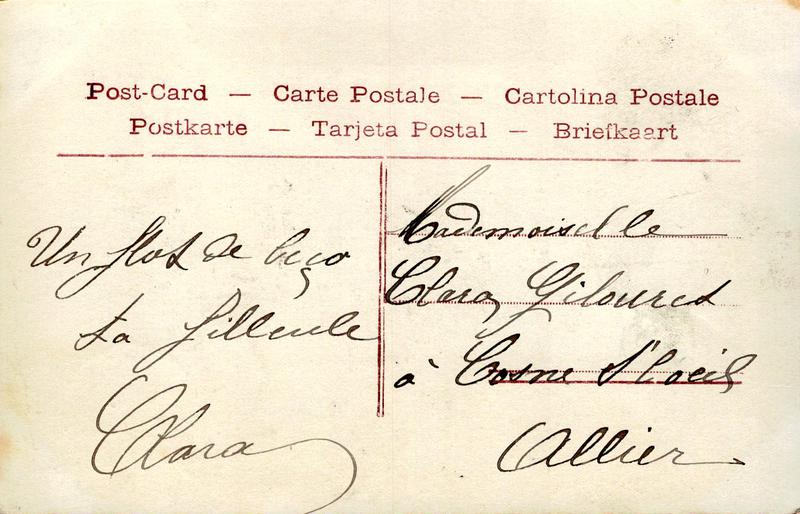 Post-Card — Carte Postale — Cartolina Postale
Postkarte — Tarjeta Postal — Briefkaart
Un flot de
ta filleule
Clara
Mademoiselle
Clara
à Cosne s'l'oeil
Allier